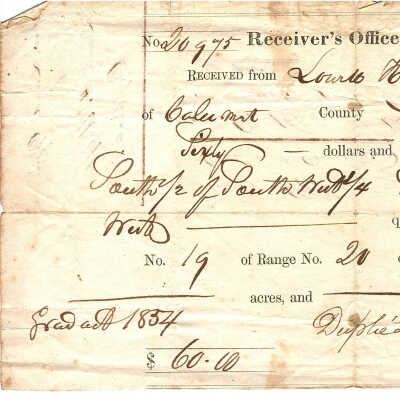 No. 20975 Receiver's Office
RECEIVED from
of Calumet County
Sixty — dollars and
South 1/2 of South West 1/4
West
No. 19 of Range No. 20
acres, and
Grad act 1854
$ 60.00